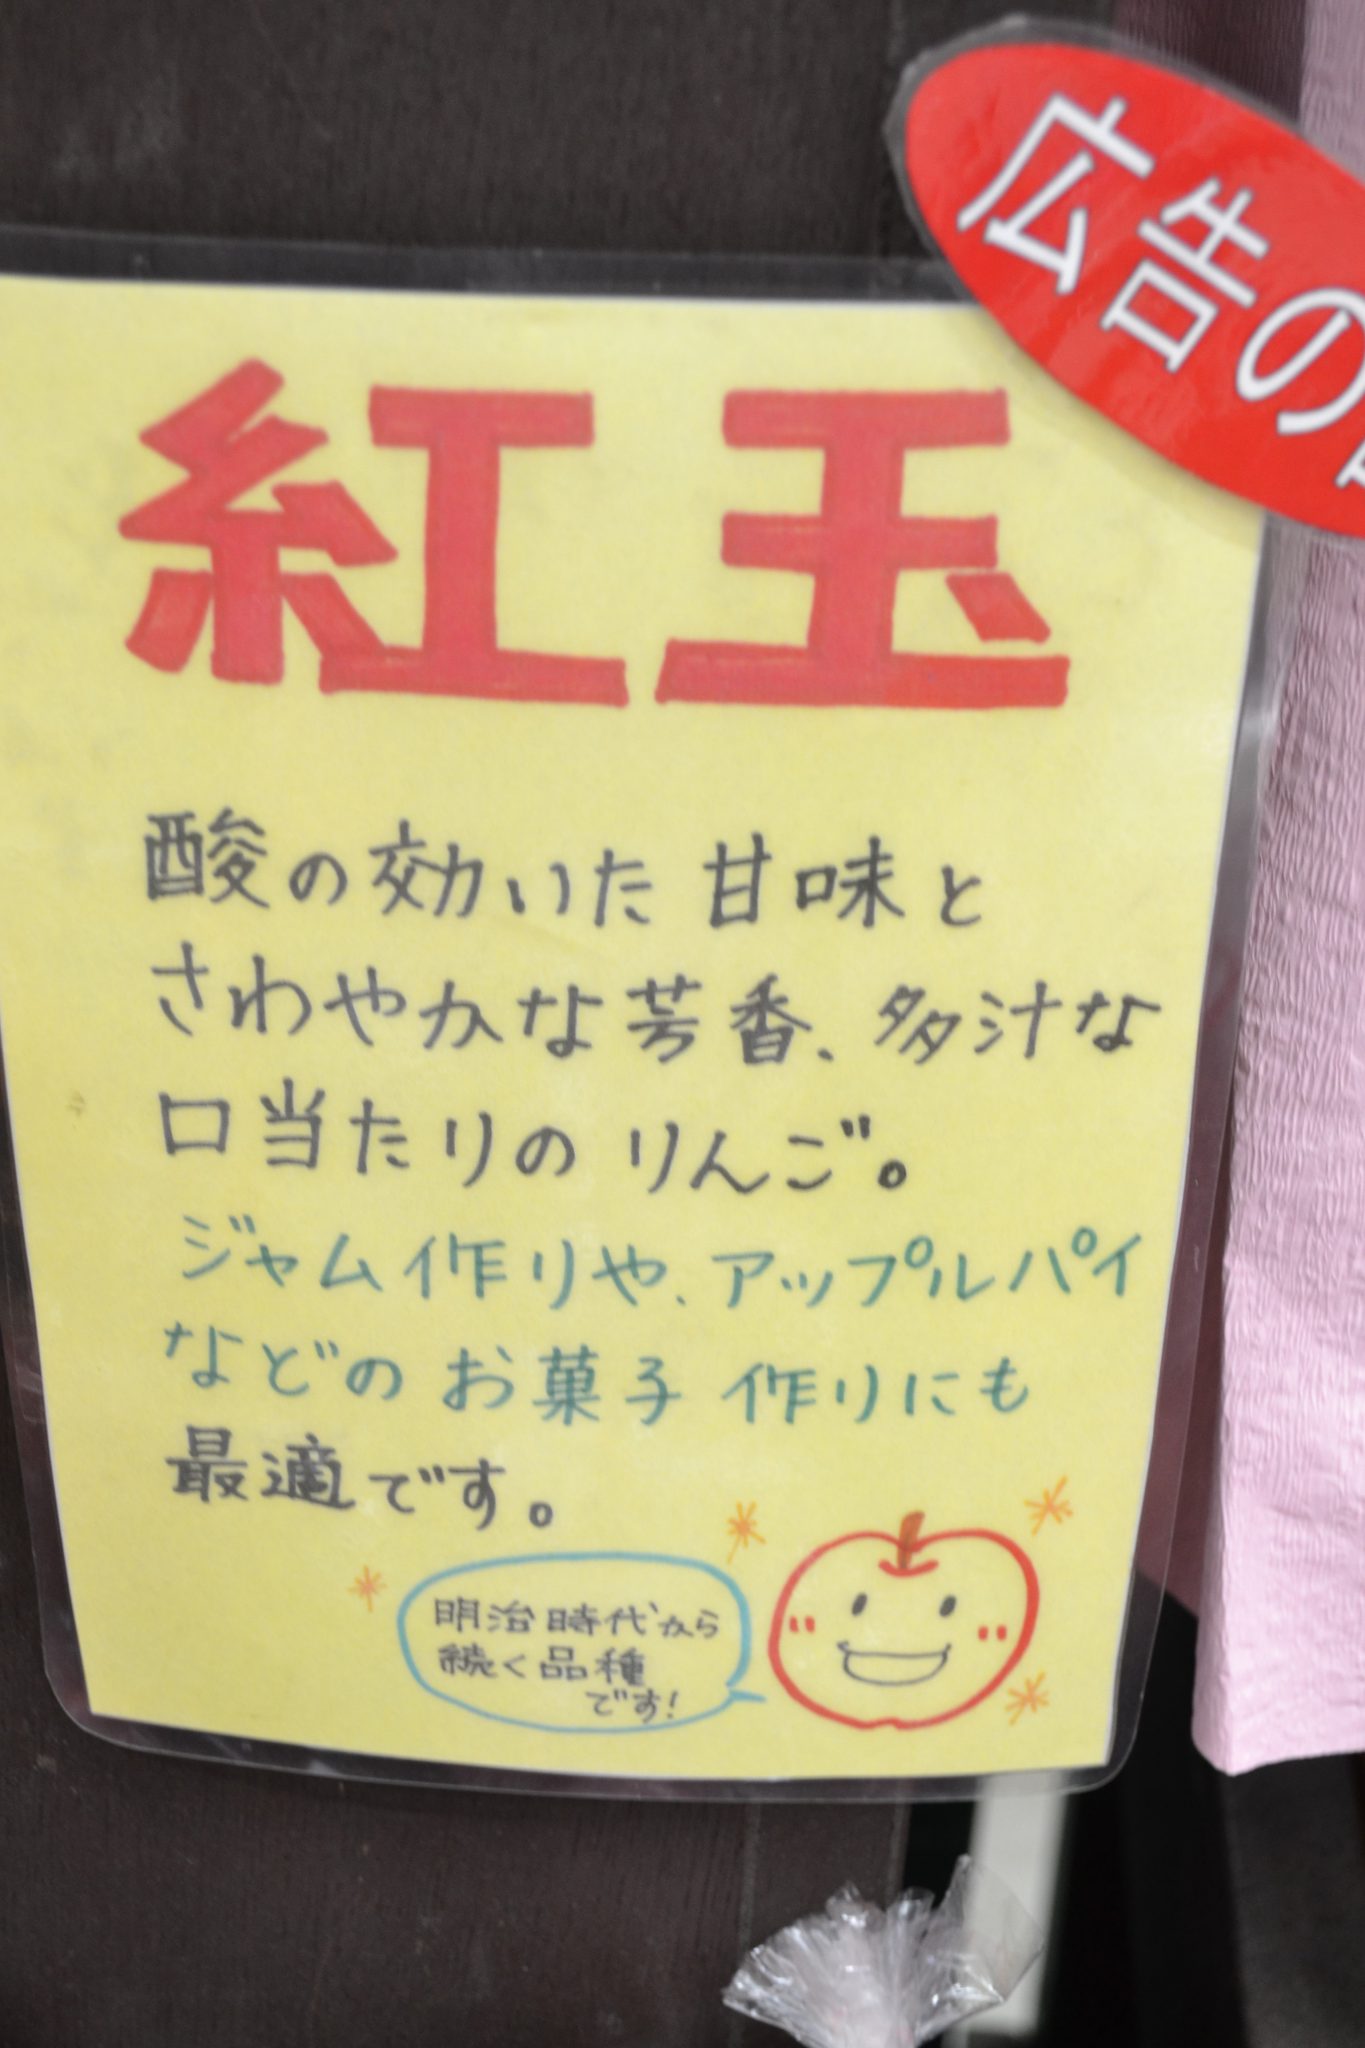 広告の
紅玉
酸の効いた甘味と
さわやかな芳香、多汁な
口当たりのりんご。
ジャム作りや、アップルパイ
などのお菓子作りにも
最適です。
明治時代から
続く品種
です!